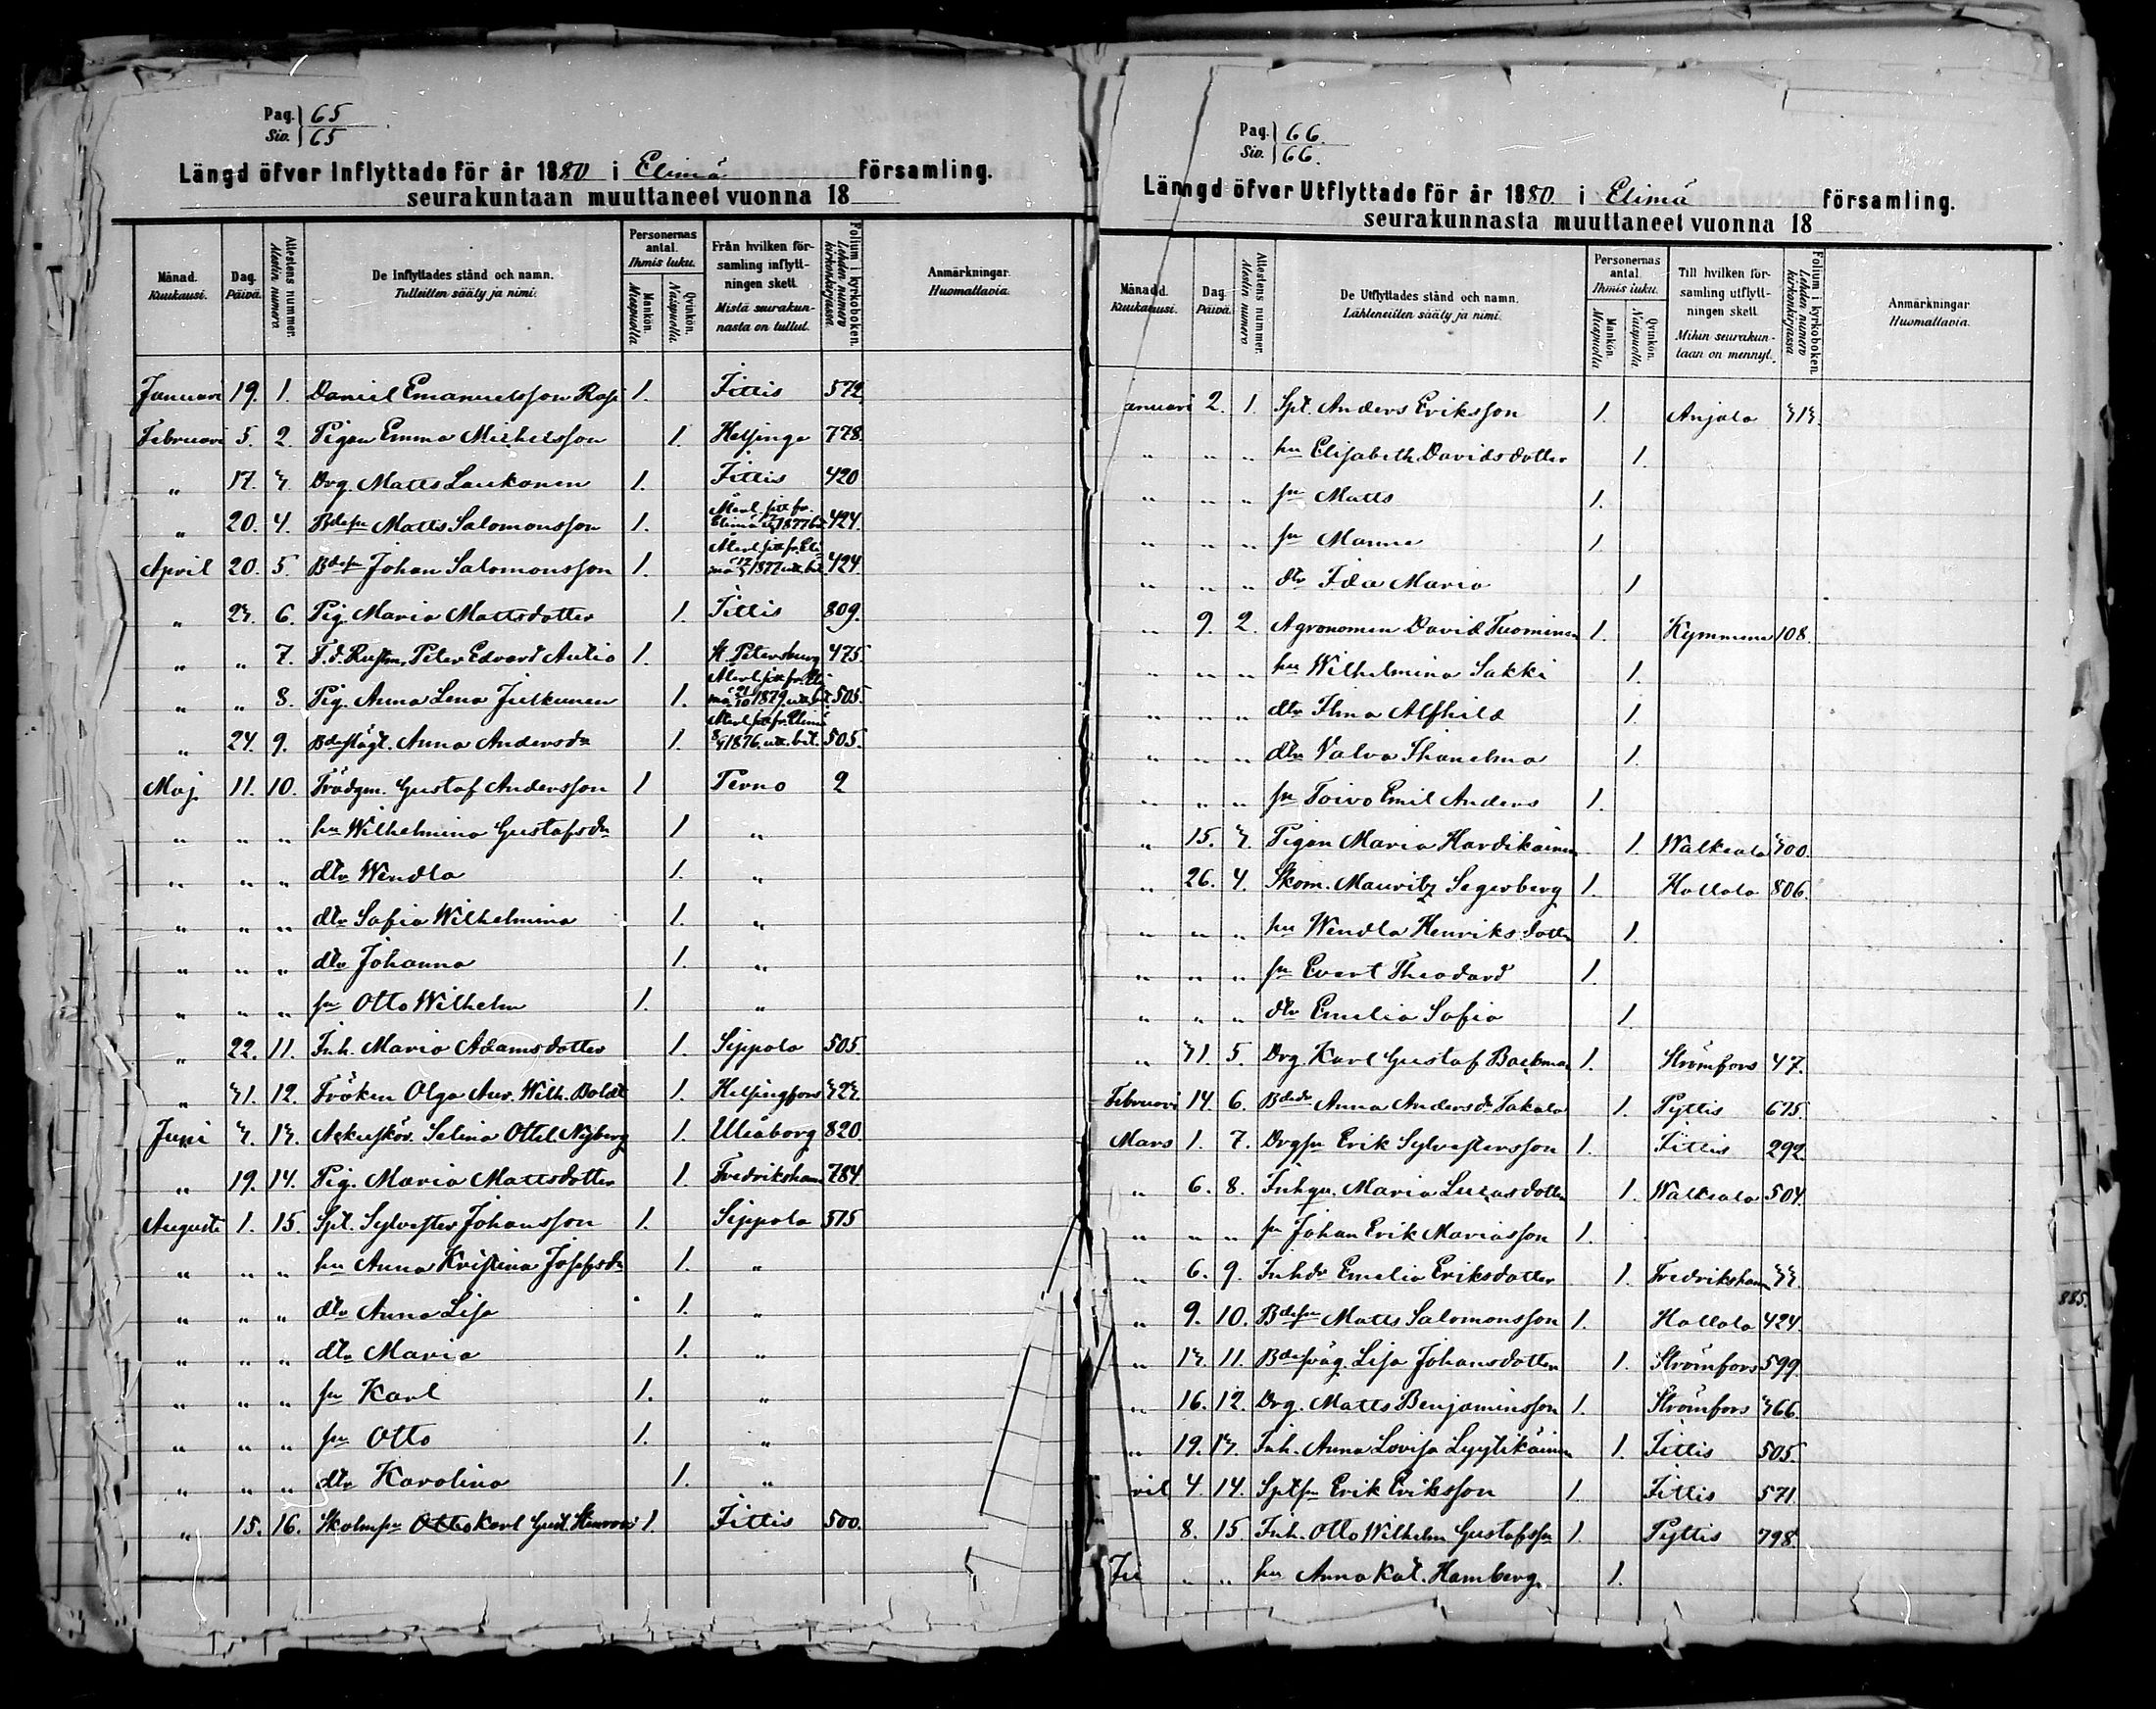 Pag. 65
Siv. 65
Längd öfver Inflyttade för år 1880 i Elimä församling.
seurakuntaan muuttaneet vuonna 18
Månad. Kuukausi. Dag. Päivä. Attestens nummer. Atestin numero De Inflyttades stånd och namn. Tulleitten sääty ja nimi. Personernas antal. Ihmis luku. Mankön. Miespuolia Qvinkön. Naispuolia Från hvilken församling inflyttningen skett. Mistä seurakunnasta on tullut. Folium i kyrkoboken. Lehden numero kirkonkirjassa Anmärkningar. Huomattavia.
Januari 19. 1. Daniel Emanuelsson 1. Jittis 572
Februari 5. 2. Pigan Emma Michelsson 1. Helsinge 778.
„ 17. 3. Drg. Matts Laukonen 1. Jittis 420
„ 20. 4. Bdesn Matts Salomonsson 1. 424.
April 20. 5. Bdesn Johan Salomonsson 1. 424.
„ 23. 6. Pig. Maria Mattsdotter 1. Jittis 809.
„ „ 7. F.d. Rustm. Peter Edvard Autio 1. St. Petersburg 475.
„ „ 8. Pig. Anna Lena Julkunen 1. 505.
„ 24. 9. Anna Andersdr 1. 505.
Maj 11. 10. Trädgm. Gustaf Andersson 1 Perno 2
„ „ „ hu Wilhelmina Gustafsdr 1 „
„ „ „ dtr Wendla 1. „
„ „ „ dtr Sofia Wilhelmina 1. „
„ „ „ dtr Johanna 1. „
„ „ „ sn Otto Wilhelm 1. „
„ 22. 11. Inh. Maria Adamsdotter 1. Sippola 505.
„ 31. 12. Fröken Olga Aur. Wilh. Boldt 1. Helsingfors 323.
Juni 3. 13. Selina Ottil. Nyberg 1. Uleåborg 820
„ 19. 14. Pig. Maria Mattsdotter 1. Fredrikshamn 784
Augusti 1. 15. Spt. Sylvester Johansson 1. Sippola 515
„ „ „ hu Anna Kristina Josefsdr 1. „
„ „ „ dtr Anna Lisa 1. „
„ „ „ dtr Maria 1. „
„ „ „ sn Karl 1. „
„ „ „ sn Otto 1. „
„ „ „ dtr Karolina 1. „
„ 15. 16. Otto Karl Gust. Stenroos 1. Jittis 500.
Pag. 66.
Siv. 66.
Längd öfver Utflyttade för år 1880 i Elimä församling.
seurakunnasta muuttaneet vuonna 18
Månad. Kuukausi. Dag. Päivä. Attestens nummer. Atestin numero De Utflyttades stånd och namn. Lähteneitten sääty ja nimi. Personernas antal. Ihmis luku. Mankön. Miespuolia Qvinkön. Naispuolia Till hvilken församling utflyttningen skett. Mihin seurakuntaan on mennyt. Folium i kyrkoboken. Lehden numero kirkonkirjassa Anmärkningar. Huomattavia.
anuari 2. 1. Spt. Anders Eriksson 1. Anjala 313.
„ „ „ hu Elisabeth Davidsdotter 1.
„ „ „ sn Matts 1.
„ „ „ sn Manne 1.
„ „ „ dtr Ida Maria 1
„ 9. 2. Agronomen David Tuominen 1. Kymmene 108.
„ „ „ hu Wilhelmina Sakki 1.
„ „ „ dtr Ilma Alfhild 1.
„ „ „ dtr Valva Ihanelma 1.
„ „ „ sn Toivo Emil Anders 1.
„ 15. 3. Pigan Maria Hardikainen 1. Walkeala 300.
„ 26. 4. Skom. Mauritz Segerberg 1. Hollola 806.
„ „ „ hu Wendla Henriksdotter 1.
„ „ „ sn Evert Theodard 1.
„ „ „ dtr Emelia Sofia 1.
„ 31. 5. Drg. Karl Gustaf Backman 1. Strömfors 47.
Februari 14. 6. Bdedr Anna Andersdr Takala 1. Pyttis 675.
Mars 1. 7. Drgsn Erik Sylvestersson 1. Jittis 292.
„ 6. 8. Inhqv. Maria Lucasdotter 1. Walkeala 504.
„ „ „ sn Johan Erik Mariasson 1.
„ 6. 9. Inhdr Emelia Eriksdotter 1. Fredrikshamn 33.
„ 9. 10. Bdesn Matts Salomonsson 1. Hollola 424.
„ 13. 11. Lisa Johansdotter 1. Strömfors 599.
„ 16. 12. Drg. Matts Benjaminsson 1. Strömfors 366.
„ 19. 13. Inh. Anna Lovisa Lyytikäinen 1. Jittis 505.
ril 4. 14. Sptsn Erik Eriksson 1. Jittis 571.
8. 15. Inh. Otto Wilhelm Gustafssn 1. Pyttis 798.
„ „ hu Anna Kat. Hamberg. 1.
885.